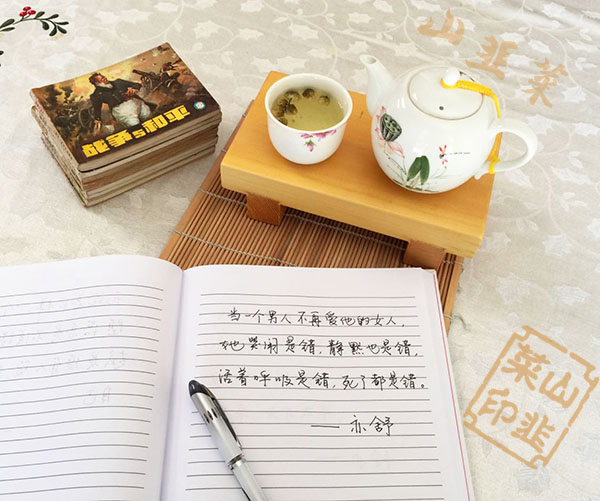 山韭菜
战争与和平
当一个男人不再爱他的女人,
她哭闹是错,静默也是错,
活着呼吸是错,死了都是错。
——亦舒
山韭
菜印